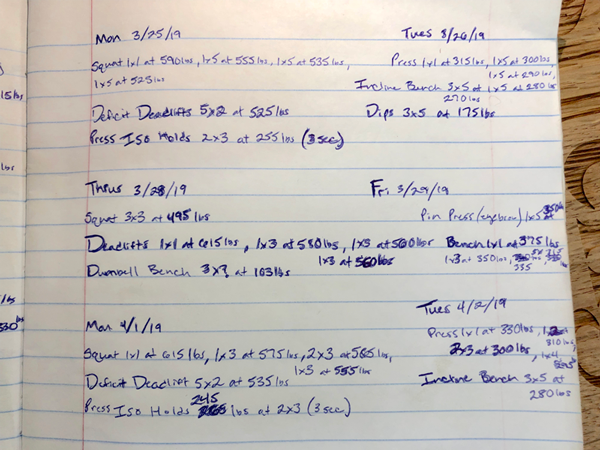 Mon 3/25/19
Squat 1x1 at 590lbs, 1x5 at 555lbs, 1x5 at 535lbs,
1x5 at 525lbs
Deficit Deadlifts 5x2 at 525lbs
Press Iso Holds 2x3 at 255lbs (3sec)
Tues 3/26/19
Press 1x1 at 315lbs, 1x5 at 300lbs,
1x5 at 290lbs,
Incline Bench 3x5 at 1x5 at 280lbs
270lbs
Dips 3x5 at 175lbs
Thrus 3/28/19
Squat 3x3 at 495lbs
Deadlifts 1x1 at 615lbs, 1x3 at 580lbs, 1x3 at 560lbs
1x3 at 560lbs
Dumbell Bench 3x? at 163lbs
Fri 3/29/19
Pin Press (eyebrow) 1x5 at
Bench 1x1 at 375lbs
1x3 at 350lbs,
Mon 4/1/19
Squat 1x1 at 615lbs, 1x3 at 575lbs, 2x3 at 565lbs,
1x3 at 555lbs
Deficit Deadlift 5x2 at 535lbs
245
Press Iso Holds lbs at 2x3 (3sec)
Tues 4/2/19
Press 1x1 at 330lbs,
310lbs,
2x3 at 300lbs, 1x4
Incline Bench 3x5 at
280lbs